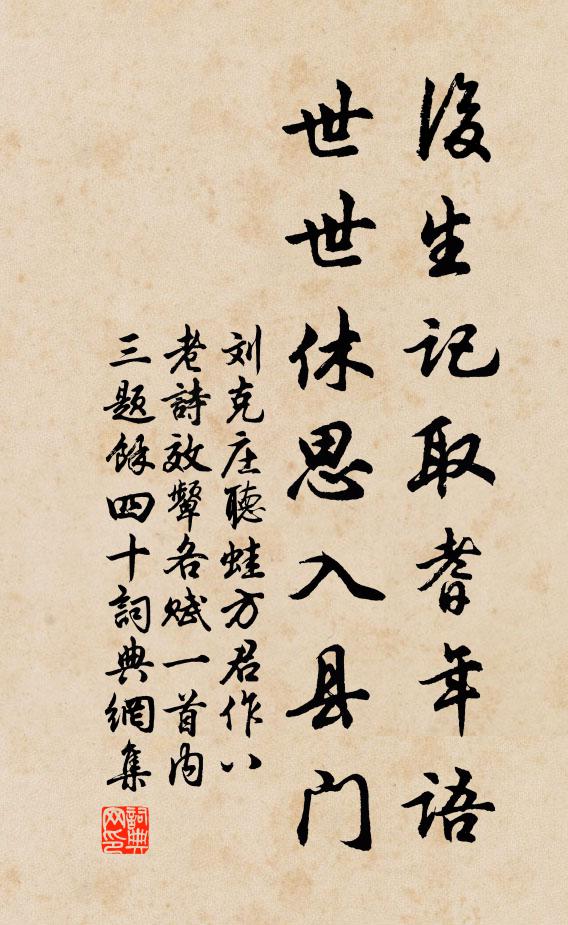 後生记取耆年语
世世休思入县门
刘克庄聽蛙方君作八
老詩效颦各赋一首内
三题馀四十詞典網集
詞典网印